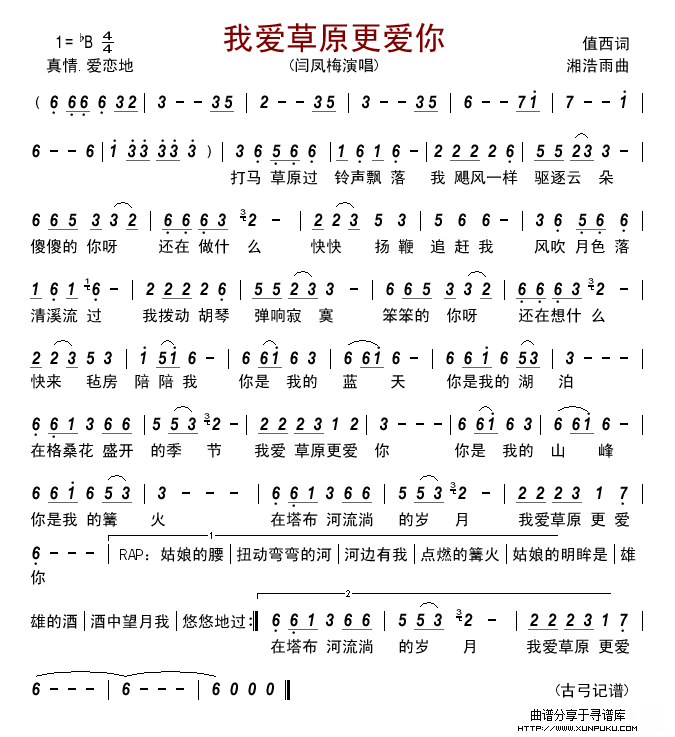 我爱草原更爱你
1=♭B 4/4
值西词
真情.爱恋地
(闫凤梅演唱)
湘浩雨曲
( 6 6 6 6 32 | 3 - - 35 | 2 - - 35 | 6 - - 7i | 7 - - i |
6 - - 6 | i 33 33 3 ) | 3 6 5 6 6 | 1 6 1 6 - | 2 2 2 2 6 | 5 5 23 3 - |
打马 草原过 铃声飘 落 我 飓风一样 驱逐云 朵
6 6 5 3 3 2 | 6 6 6 3 2 - | 2 2 3 5 3 | 5 6 6 - | 3 6 5 6 6 |
傻傻的 你呀 还在 做什 么 快快 扬 鞭 追 赶 我 风吹 月色 落
1 6 1 6 - | 2 2 2 2 6 | 5 5 2 3 3 - | 6 6 5 3 3 2 | 6 6 6 3 2 - |
清溪流 过 我拨动 胡琴 弹响寂 寞 笨笨的 你呀 还在想什 么
2 2 3 5 3 | i 5i 6 - | 6 6i 6 3 | 6 6i 6 - | 6 6 i 6 53 | 3 - - - |
快来 毡房 陪陪 我 你是 我的 蓝 天 你是我的 湖 泊
6 6 1 3 6 6 | 5 5 3 2 - | 2 2 2 3 1 2 | 3 - - - | 6 6i 6 3 | 6 6i 6 - |
在格桑花 盛开 的季 节 我爱 草原更爱 你 你是 我的 山 峰
6 6 i 6 5 3 | 3 - - - | 6 6 1 3 6 6 | 5 5 3 2 - | 2 2 2 3 1 7 |
你是我 的篝 火 在塔布 河流淌 的岁 月 我爱草原 更 爱
1
6 - - - | RAP: 姑娘的腰 | 扭动弯弯的河 | 河边有我 | 点燃的篝火 | 姑娘的明眸是 | 雄
你
2
雄的酒 | 酒中望月我 | 悠悠地过 :‖ 6 6 1 3 6 6 | 5 5 3 2 - | 2 2 2 3 1 7 |
在塔布 河流淌 的岁 月 我爱草原 更爱
6 - - - | 6 - - - | 6 0 0 0 ‖
(古弓记谱)
曲谱分享于寻谱库
HTTP://WWW.XUNPUKU.COM